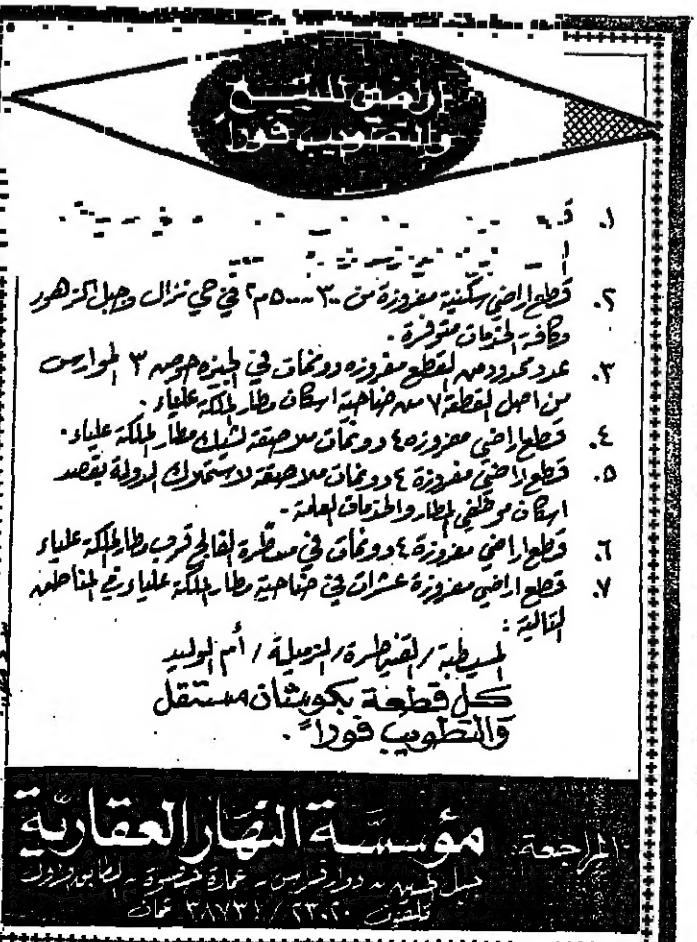 اراضي للبيع
والتطويب فوراً
١.
٢. قطع اراضي سكنية مفروزة من ٣٠٠ - ٥٠٠ م٢ في حي نزال وجبل الزهور
وكافة الخدمات متوفرة .
٣. عدد محدود من القطع مفروزه دونمات في الجيزه حوض ٣
من اصل القطعة ٧ من ضاحية اسكان مطار الملكة علياء .
٤. قطع اراضي مفروزه ٤ دونمات ملاصقة لشبك مطار الملكة علياء .
٥. قطع اراضي مفروزة ٤ دونمات ملاصقة لاستملاك الدولة بقصد
اسكان موظفي المطار والخدمات العامة .
٦. قطع اراضي مفروزة ٤ دونمات في قرب مطار الملكة علياء
٧. قطع اراضي مفروزة عشرات في ضاحية مطار الملكة علياء في المناطق
التالية :
المسيطبة / القنيطرة / الزميلة / أم الوليد
كل قطعة بكوشان مستقل
والتطويب فوراً .
المراجعة : مؤسسة النهار العقارية
جبل الحسين - دوار فراس - عمارة - الطابق
تلفون ٢٣٠٢٠ / ٣٨٧٣١ عمان